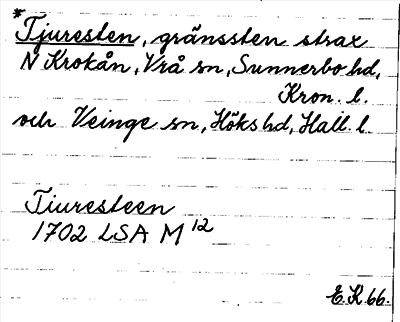 *Tjuresten, gränssten strax
N Krokån, Vrå sn, Sunnerbo hd,
Kron. l.
och Veinge sn, Höks hd, Hall. l.
Tiuresteen
1702 LSA M 12
E.K 66.